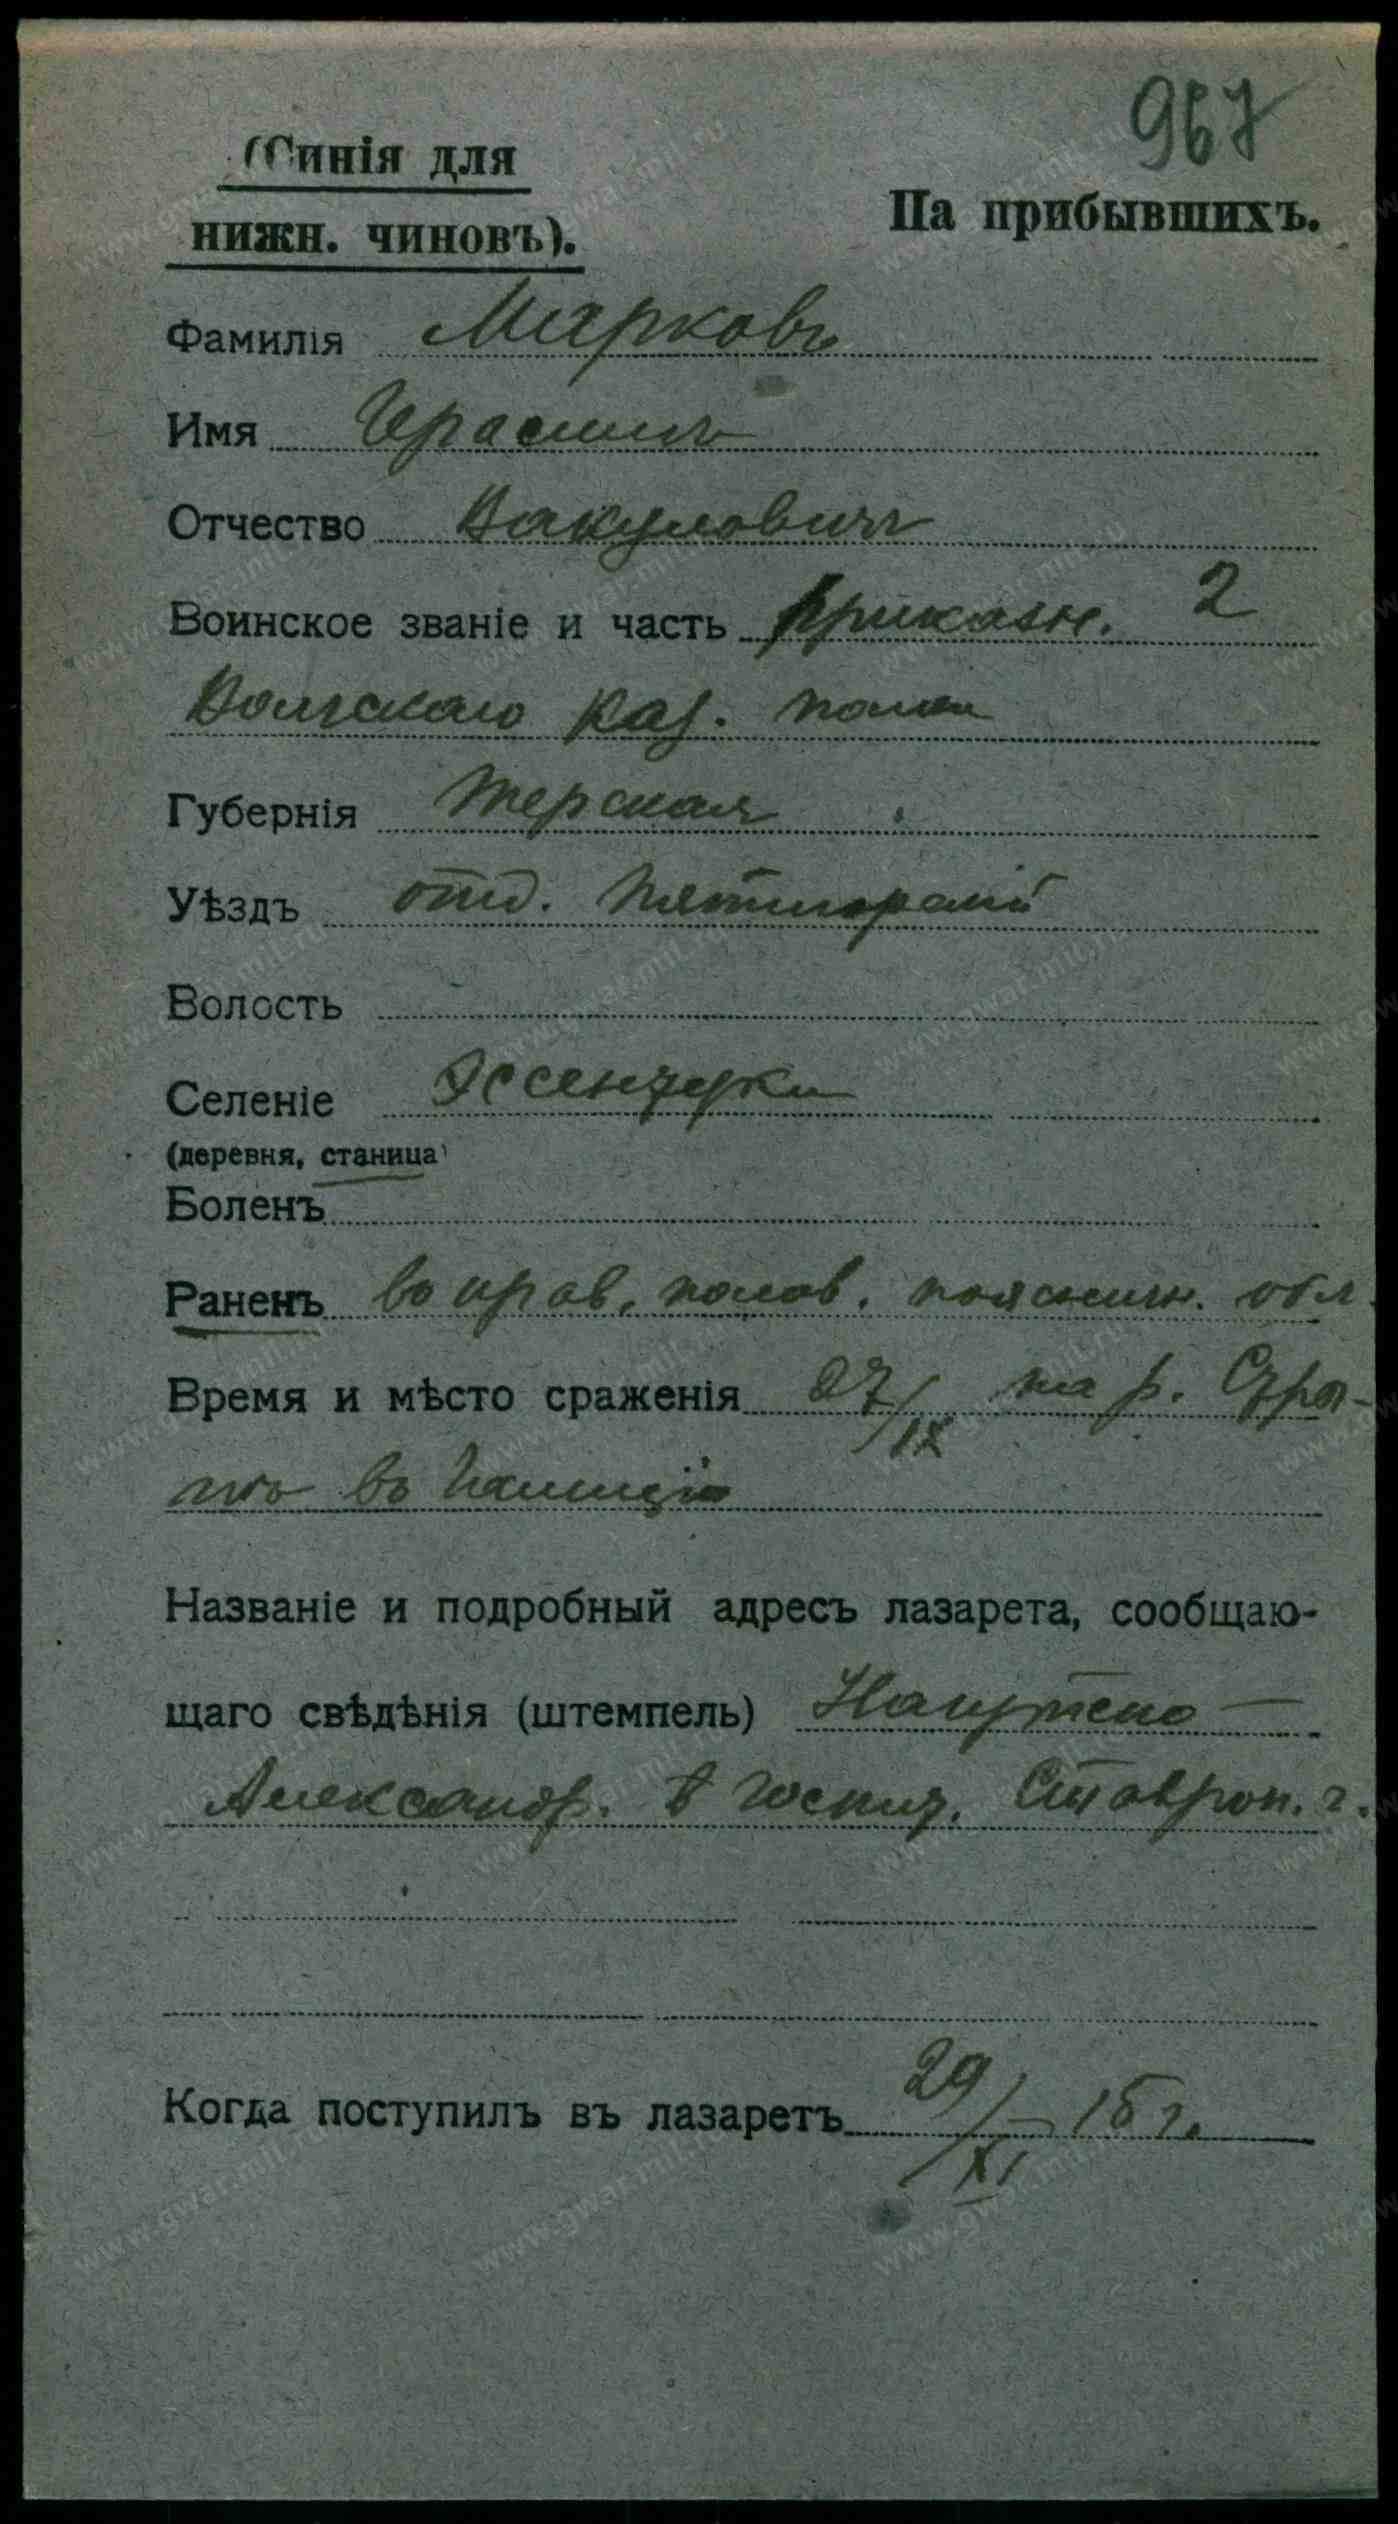 967
(Синія для
нижн. чиновъ).
На прибывшихъ.
Фамилія Марковъ
Имя Герасимъ
Отчество Вакуловичъ
Воинское званіе и часть приказн. 2
Волгскаго каз. полка
Губернія Терская
Уѣздъ отд. Пятигорскій
Волость
Селеніе Эссентуки
(деревня, станица)
Боленъ
Раненъ въ прав. полов. пояснич. обл.
Время и мѣсто сраженія 27/IX на р. Стры-
пѣ въ Галиціи
Названіе и подробный адресъ лазарета, сообщаю-
щаго свѣдѣнія (штемпель)
Александр. госпит. Ставроп. г.
Когда поступилъ въ лазаретъ 29/XI 15 г.
www.gwar.mil.ru